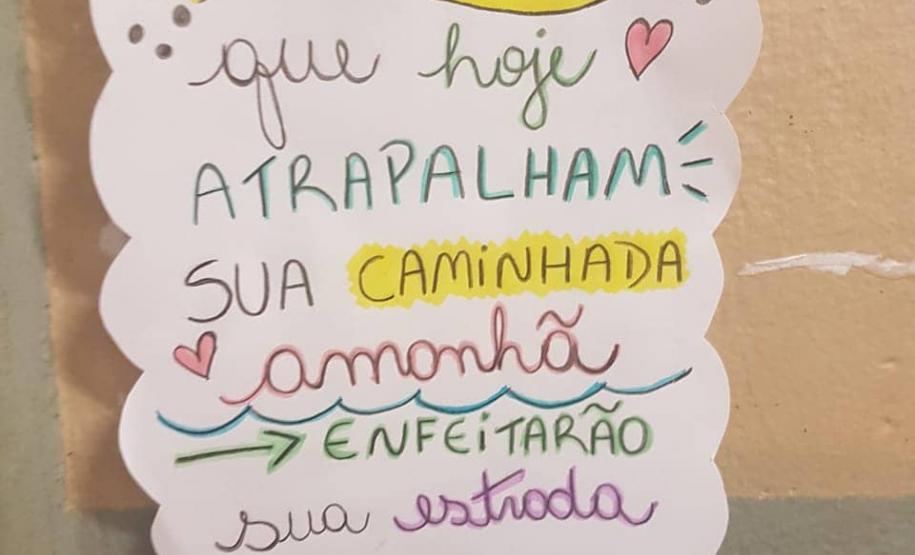 que hoje
ATRAPALHAM
SUA CAMINHADA
amanhã
ENFEITARÃO
sua estrada